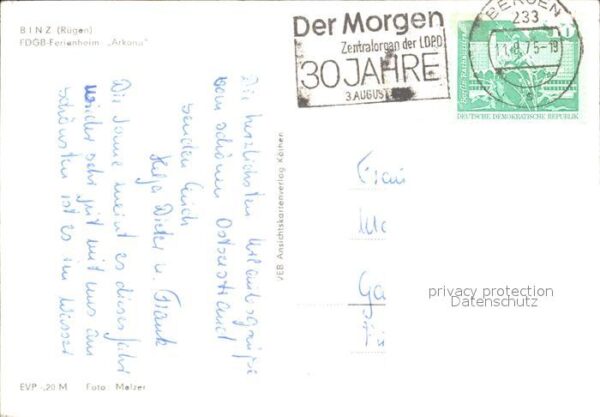 BINZ (Rügen)
FDGB-Ferienheim „Arkona"
Der Morgen
Zentralorgan der LDPD
30 JAHRE
3. AUGUST
BERGEN
233
Berlin
DEUTSCHE DEMOKRATISCHE REPUBLIK
Die herzlichsten Urlaubsgrüße
vom schönen Ostseestrand
senden Euch
Dieter u. Frank
Die Sonne meint es dieses Jahr
wieder sehr gut mit uns am
schönsten ist es im Wasser
VEB Ansichtskartenverlag Köthen
Frau
Ga
privacy protection
Datenschutz
EVP -,20 M Foto: Melzer